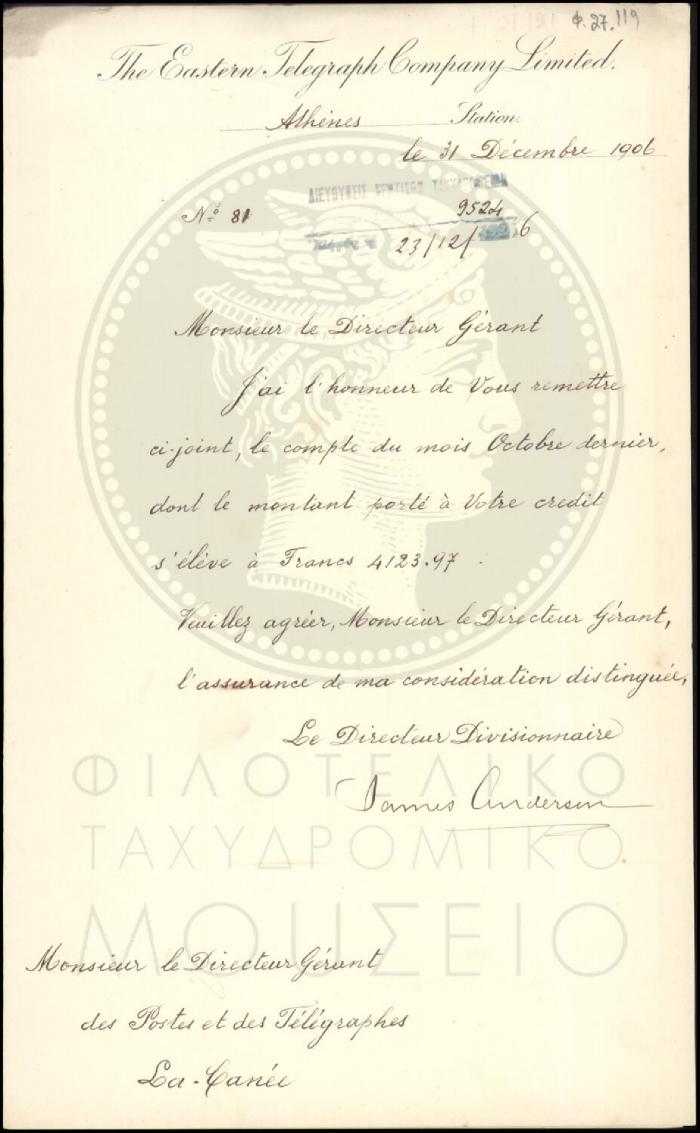 Φ.27.119
The Eastern Telegraph Company Limited.
Athènes Station.
le 31 Décembre 1906
ΔΙΕΥΘΥΝΣΙΣ ΚΡΗΤΙΚΩΝ ΤΑΧΥΔΡΟΜΕΙΩΝ
Nº 81 9524
23/12/ 6
Monsieur le Directeur Gérant
J'ai l'honneur de Vous remettre
ci-joint, le compte du mois Octobre dernier,
dont le montant porté à Votre credit
s'élève à Francs 4123.97.
Veuillez agréer, Monsieur le Directeur Gérant,
l'assurance de ma considération distinguée,
Le Directeur Divisionnaire
James Anderson
ΦΙΛΟΤΕΛΙΚΟ
ΤΑΧΥΔΡΟΜΙΚΟ
ΜΟΥΣΕΙΟ
Monsieur le Directeur Gérant
des Postes et des Télégraphes
La-Canée